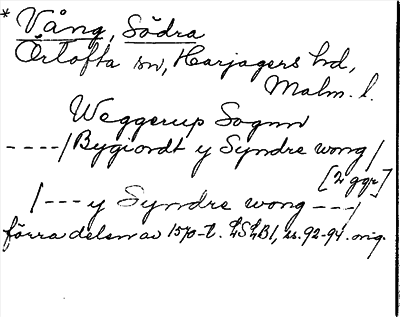 * Vång, Södra
Örtofta sn, Harjagers hd,
Malm. l.
Weggerup Sognn
----/Bygiordt y Syndre wong/
[2 ggr]
/--- y Syndre wong ---/
förra delen av 1570-t. LSLB1, s. 92-94. orig.